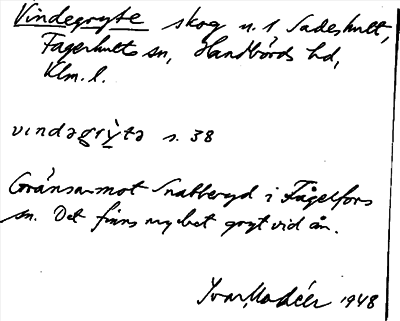 Vindegryte skog u. 1 Sadeshult,
Fagerhults sn, Handbörds hd,
Klm. l.
vındəgrỳtə s. 38
Gränsar mot Snabberyd i Fågelfors
sn. Det finns mycket gryt vid ån.
Ivar Modéer 1948